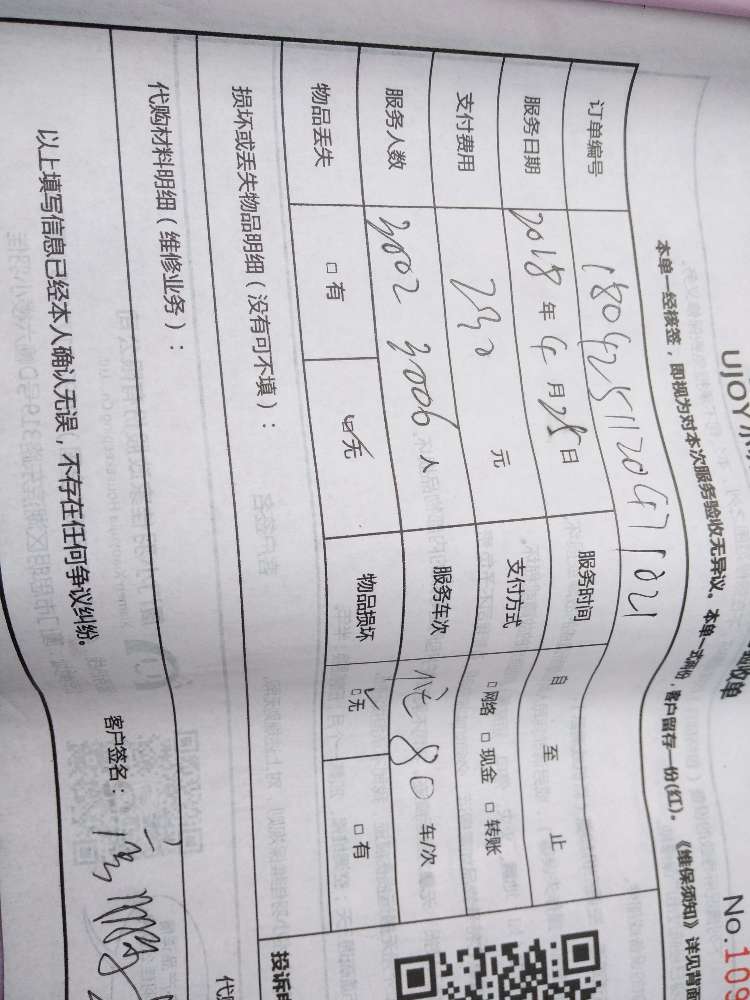 UJOY
收单
No.109
本单一经核签，即视为对本次服务验收无异议。本单一式两份，客户留存一份(红)。《维保须知》详见背面
订单编号 1804251120471021
服务日期 2018年4月25日 服务时间 自 至 止
支付费用 230 元 支付方式 □网络 □现金 □转账
服务人数 3002 3006 人 服务车次 80 车/次
物品丢失 □有 ☑无 物品损坏 ☑无 □有
损坏或丢失物品明细（没有可不填）：
投诉
代购材料明细（维修业务）：
代
以上填写信息已经本人确认无误，不存在任何争议纠纷。 客户签名：